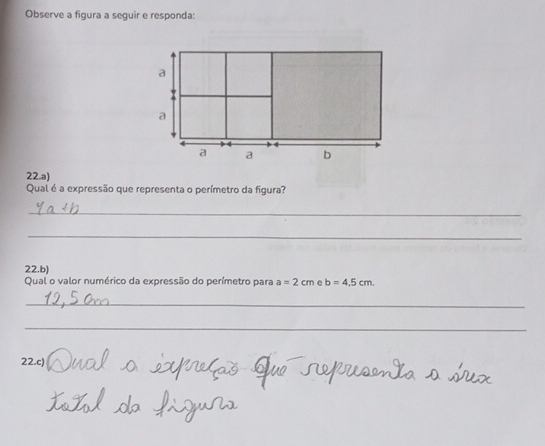 Observe a figura a seguir e responda:
a
a
a
a
b
22.a)
Qual é a expressão que representa o perímetro da figura?
4a+b
22.b)
Qual o valor numérico da expressão do perímetro para a = 2 cm e b = 4,5 cm.
12,5 cm
22.c) Qual a expreção que representa a área
total da figura